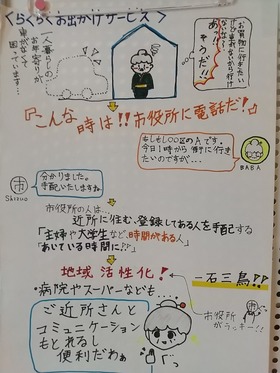 <らくらくお出かけサービス>
一人暮らしの
お年寄りが
困っています…
あっ!
そうだ!!
『こんな
時は!!市役所に電話だ!』
もしもし〇〇区のAです。
今日1時から街に行き
たいのですが…
BABA
市
Shizuo
分かりました。
手配いたしますね
市役所の人は…
近所に住む、登録してある人を手配する
「主婦や大学生など、時間がある人」
「あいている時間に♪♪」
地域活性化!
一石三鳥♪♪
・病院やスーパーなども
ご近所さんと
コミュニケーション
もとれるし
便利だわぁ
市役所
がラッキー!!